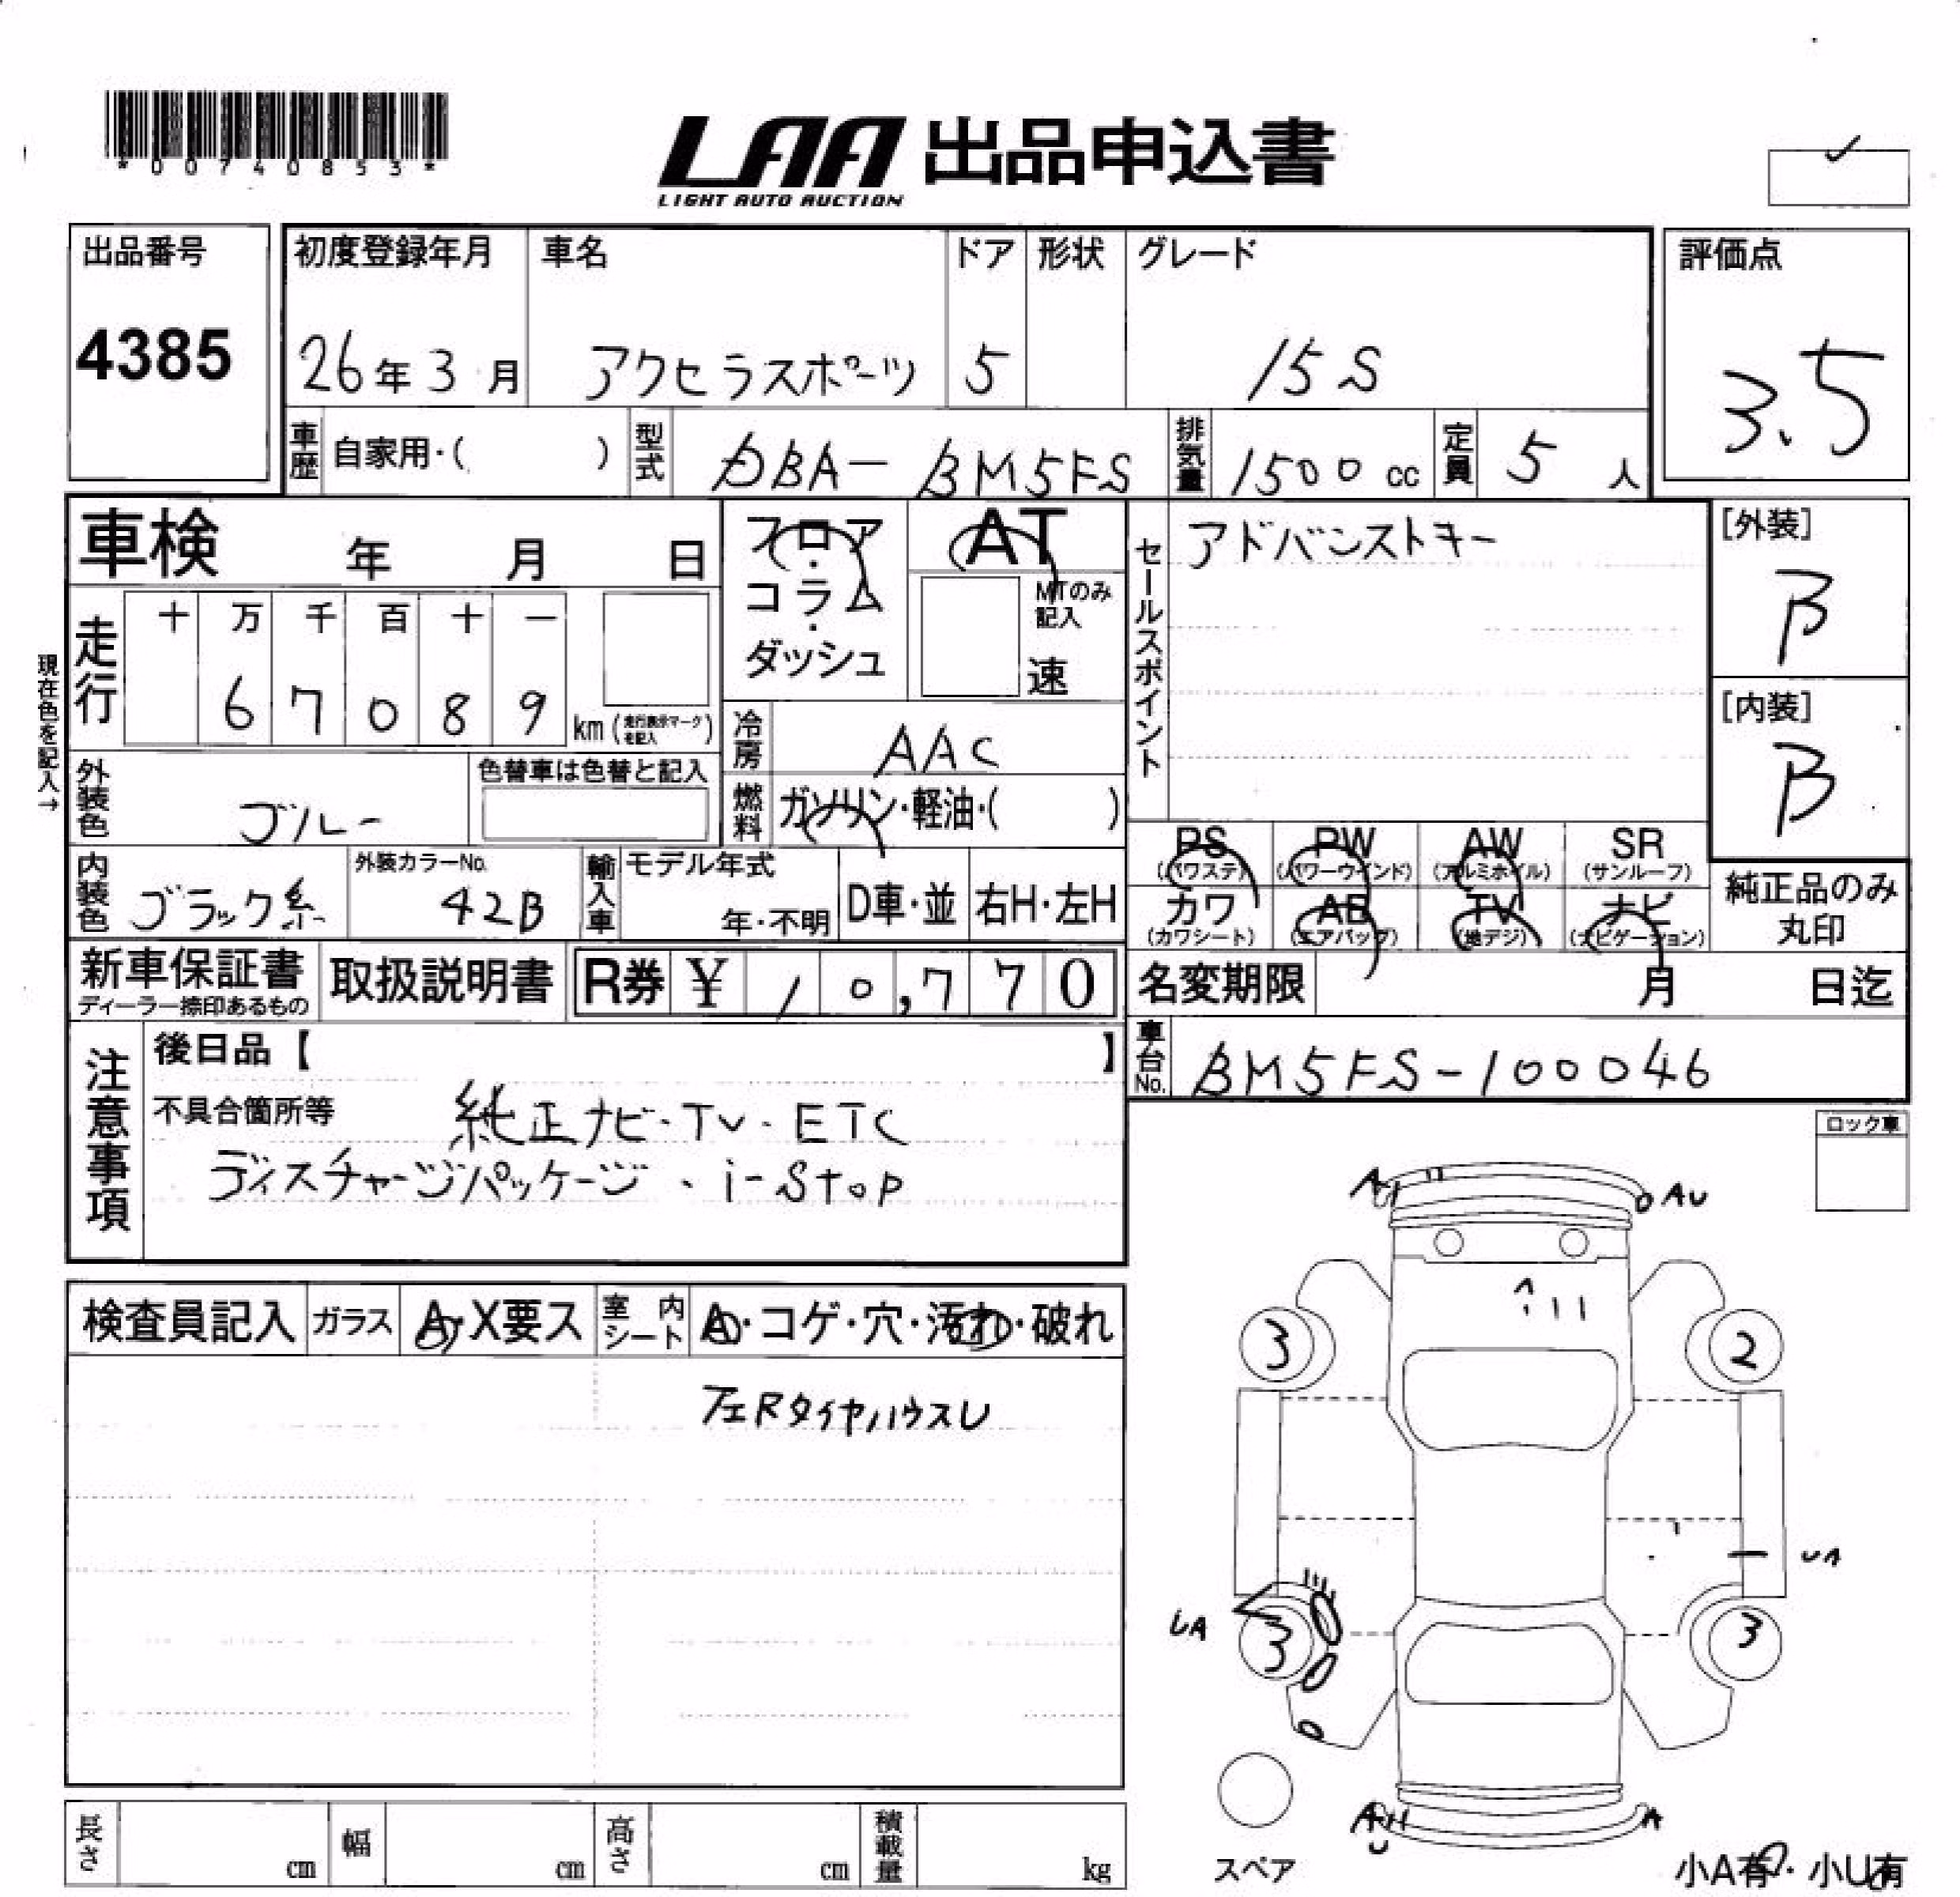 *00740853*
LAA 出品申込書
LIGHT AUTO AUCTION
出品番号
4385
初度登録年月
26年3月
車名
アクセラスポーツ
ドア
5
形状
グレード
15S
評価点
3.5
車歴 自家用・( )
型式 DBA-BM5FS
排気量 1500cc
定員 5人
車検 年 月 日
フロア・コラム・ダッシュ
AT
MTのみ記入
速
セールスポイント
アドバンストキー
[外装]
B
[内装]
B
現在色を記入→
走行
十 万 千 百 十 一
6 7 0 8 9 km(走行表示マークを記入)
冷房 AAC
外装色 ブルー
色替車は色替と記入
燃料 ガソリン・軽油・( )
内装色 ブラック系
外装カラーNo. 42B
輸入車 モデル年式
年・不明
D車・並
右H・左H
PS (パワステ)
PW (パワーウインド)
AW (アルミホイル)
SR (サンルーフ)
カワ (カワシート)
AB (エアバッグ)
TV (地デジ)
ナビ (ナビゲーション)
純正品のみ丸印
新車保証書
ディーラー捺印あるもの
取扱説明書
R券 ¥ 10,770
名変期限 月 日迄
車台No. BM5FS-100046
注意事項
後日品【 】
不具合箇所等
純正ナビ・TV・ETC
ディスチャージパッケージ・i-Stop
ロック車
検査員記入
ガラス
A・X要ス
室内シート
A・コゲ・穴・汚れ・破れ
タイヤハウス
A
AU
3
2
UA
UA
3
3
A
スペア
小A有・小U有
長さ cm
幅 cm
高さ cm
積載量 kg